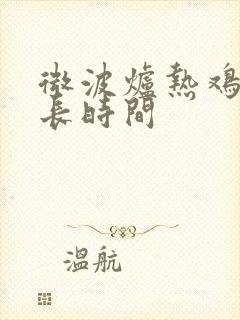 微波爐熱鸡
長時間
溫航